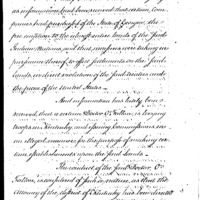 as information has been received that certain com-
panies had purchased of the State of Georgia, the
pre-emption to the almost entire lands of the said
Indian Nations and that measures were taking in
pursuance thereof to effect settlements on the said
lands, in direct violation of the said treaties and
the power of the United States.
And information has lately been
received, that a certain Doctor O'Fallon, is levying
troops in Kentucky, and issuing commissions, in
an alleged manner, for the purpose of making cer-
tain establishments upon the said lands.
The conduct of the said Doctor O'
Fallon, is complained of such in nature, as that the
Attorney of the district of Kentucky has considered